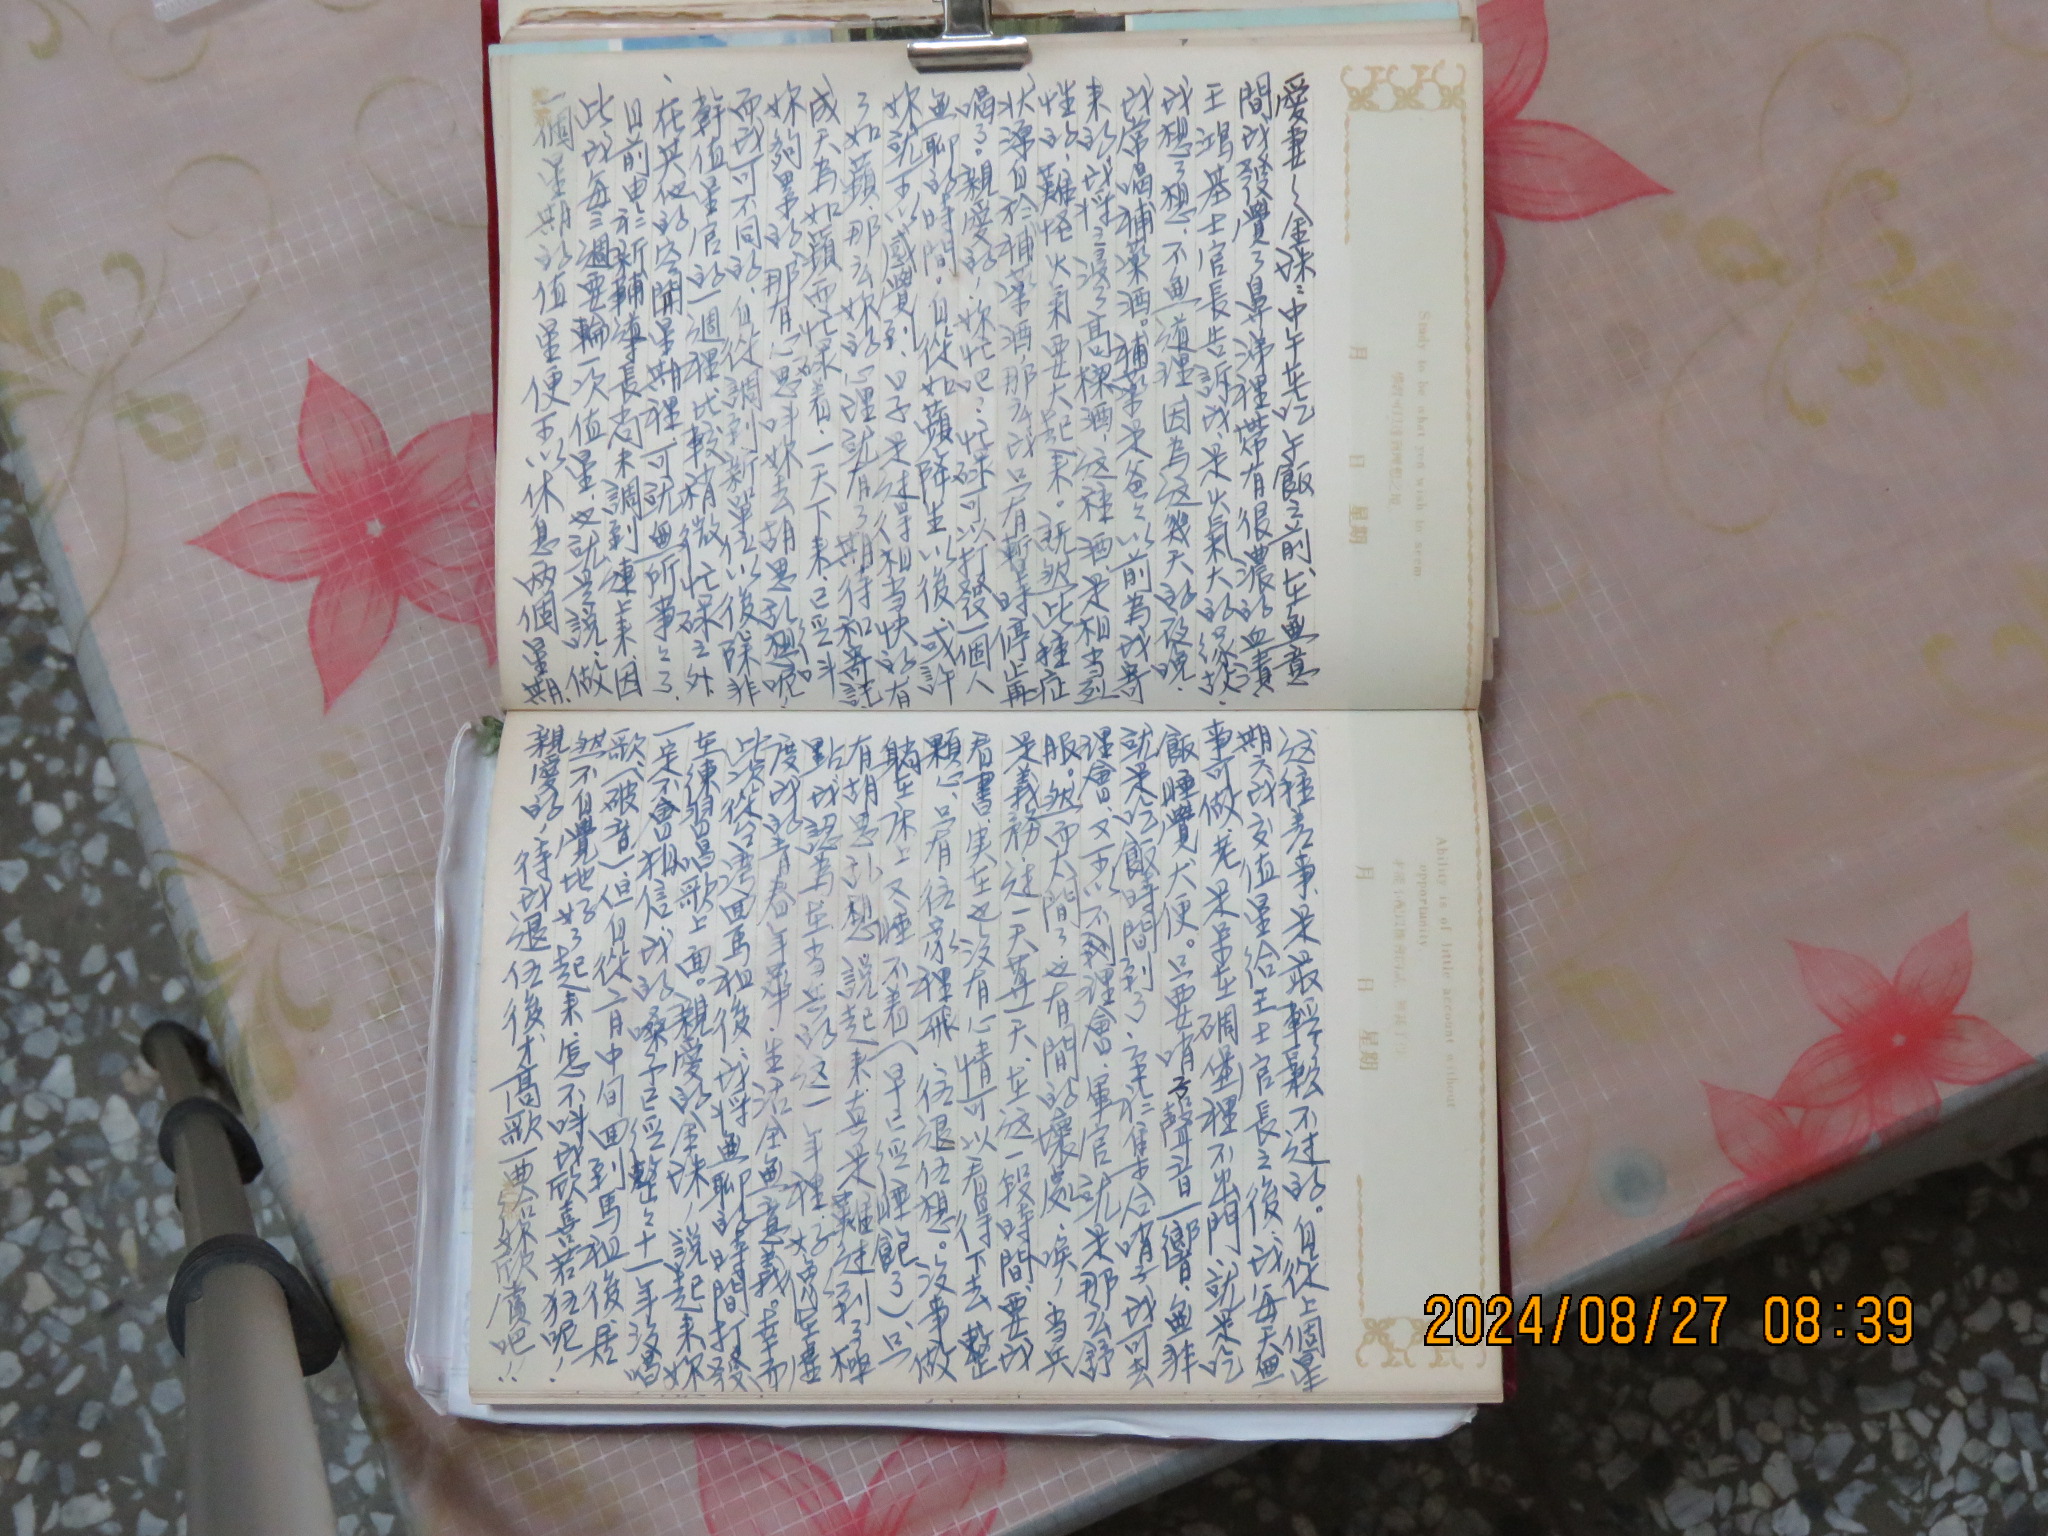 愛妻々金珠：中午在吃午飯之前，在無意
間我發覺了鼻涕裡帶有很濃的血漬，
王鴻基士官長告訴我，是火氣大的緣故，
我想了想，不無道理，因為這幾天的夜晚，
我常喝補藥酒。補藥是爸々以前為我寄
來的，我將之浸了高樑酒，這種酒，是相當烈
性的，難怪火氣要大起來。既然此種症
狀源自於補藥酒，那么我只有暫時停止再
喝了。親愛的，妳忙吧：忙碌可以打發一個人
無聊的時間。自從如蘋降生以後，或許
妳就可以感覺到，日子是过得相当快的，有
了如蘋，那么妳的心理就有了期待和寄託，
成天為如蘋而忙碌着，一天下來，已经叫
妳夠累的，那有心思叫妳去胡思乱想呢，
而我可不同的，自從調到新單位以後，除非
幹值星官的一週裡，比較稍微忙碌之外
，在其他的空閒星期裡，可就無所事々了，
目前由於新輔導長尚未調到連上來，因
此我每三週要輪一次值星，也就是說，做
一個星期的值星便可以休息两個星期，
这種差事，是最輕鬆不过的。自從上個星
期六我交值星給王士官長之後，我每天無
事可做，老是呆在碉堡裡不出門，就是吃
飯睡覺大便。只要哨子聲音一響，無非
就是吃飯時間到了，家福集合哨子我可去
理會，又可以不到理會，軍官就是那么舒
服。然而太閒了也有閒的壞處，唉，当兵
是義務，过一天算一天，在这一段時間，要我
看書，実在也没有心情可以看得下去，整
顆心，只有往家裡飛，往退伍想。没事做
躺在床上又睡不着（早已经睡飽了），只
有胡思乱想，説起來真是難过到了極
點，我認為在当兵的这一年裡，好像在虛
度我的青春年華，生活全無意義。幸而
此次從台湾回馬祖後，我將無聊的時間打發
在練習唱歌上面。親愛的金珠，說起來妳
一定不會相信，我的嗓子已经整々十一年没唱
歌（破音）但自從二月中旬回到馬祖後，居
然不自覺地好了起來，怎不叫我欣喜若狂呢！
親愛的，待我退伍後，才高歌一曲給妳欣賞吧！！
Study to be what you wish to seem
月 日 星期
Ability is of little account without
opportunity
月 日 星期
2024/08/27 08:39